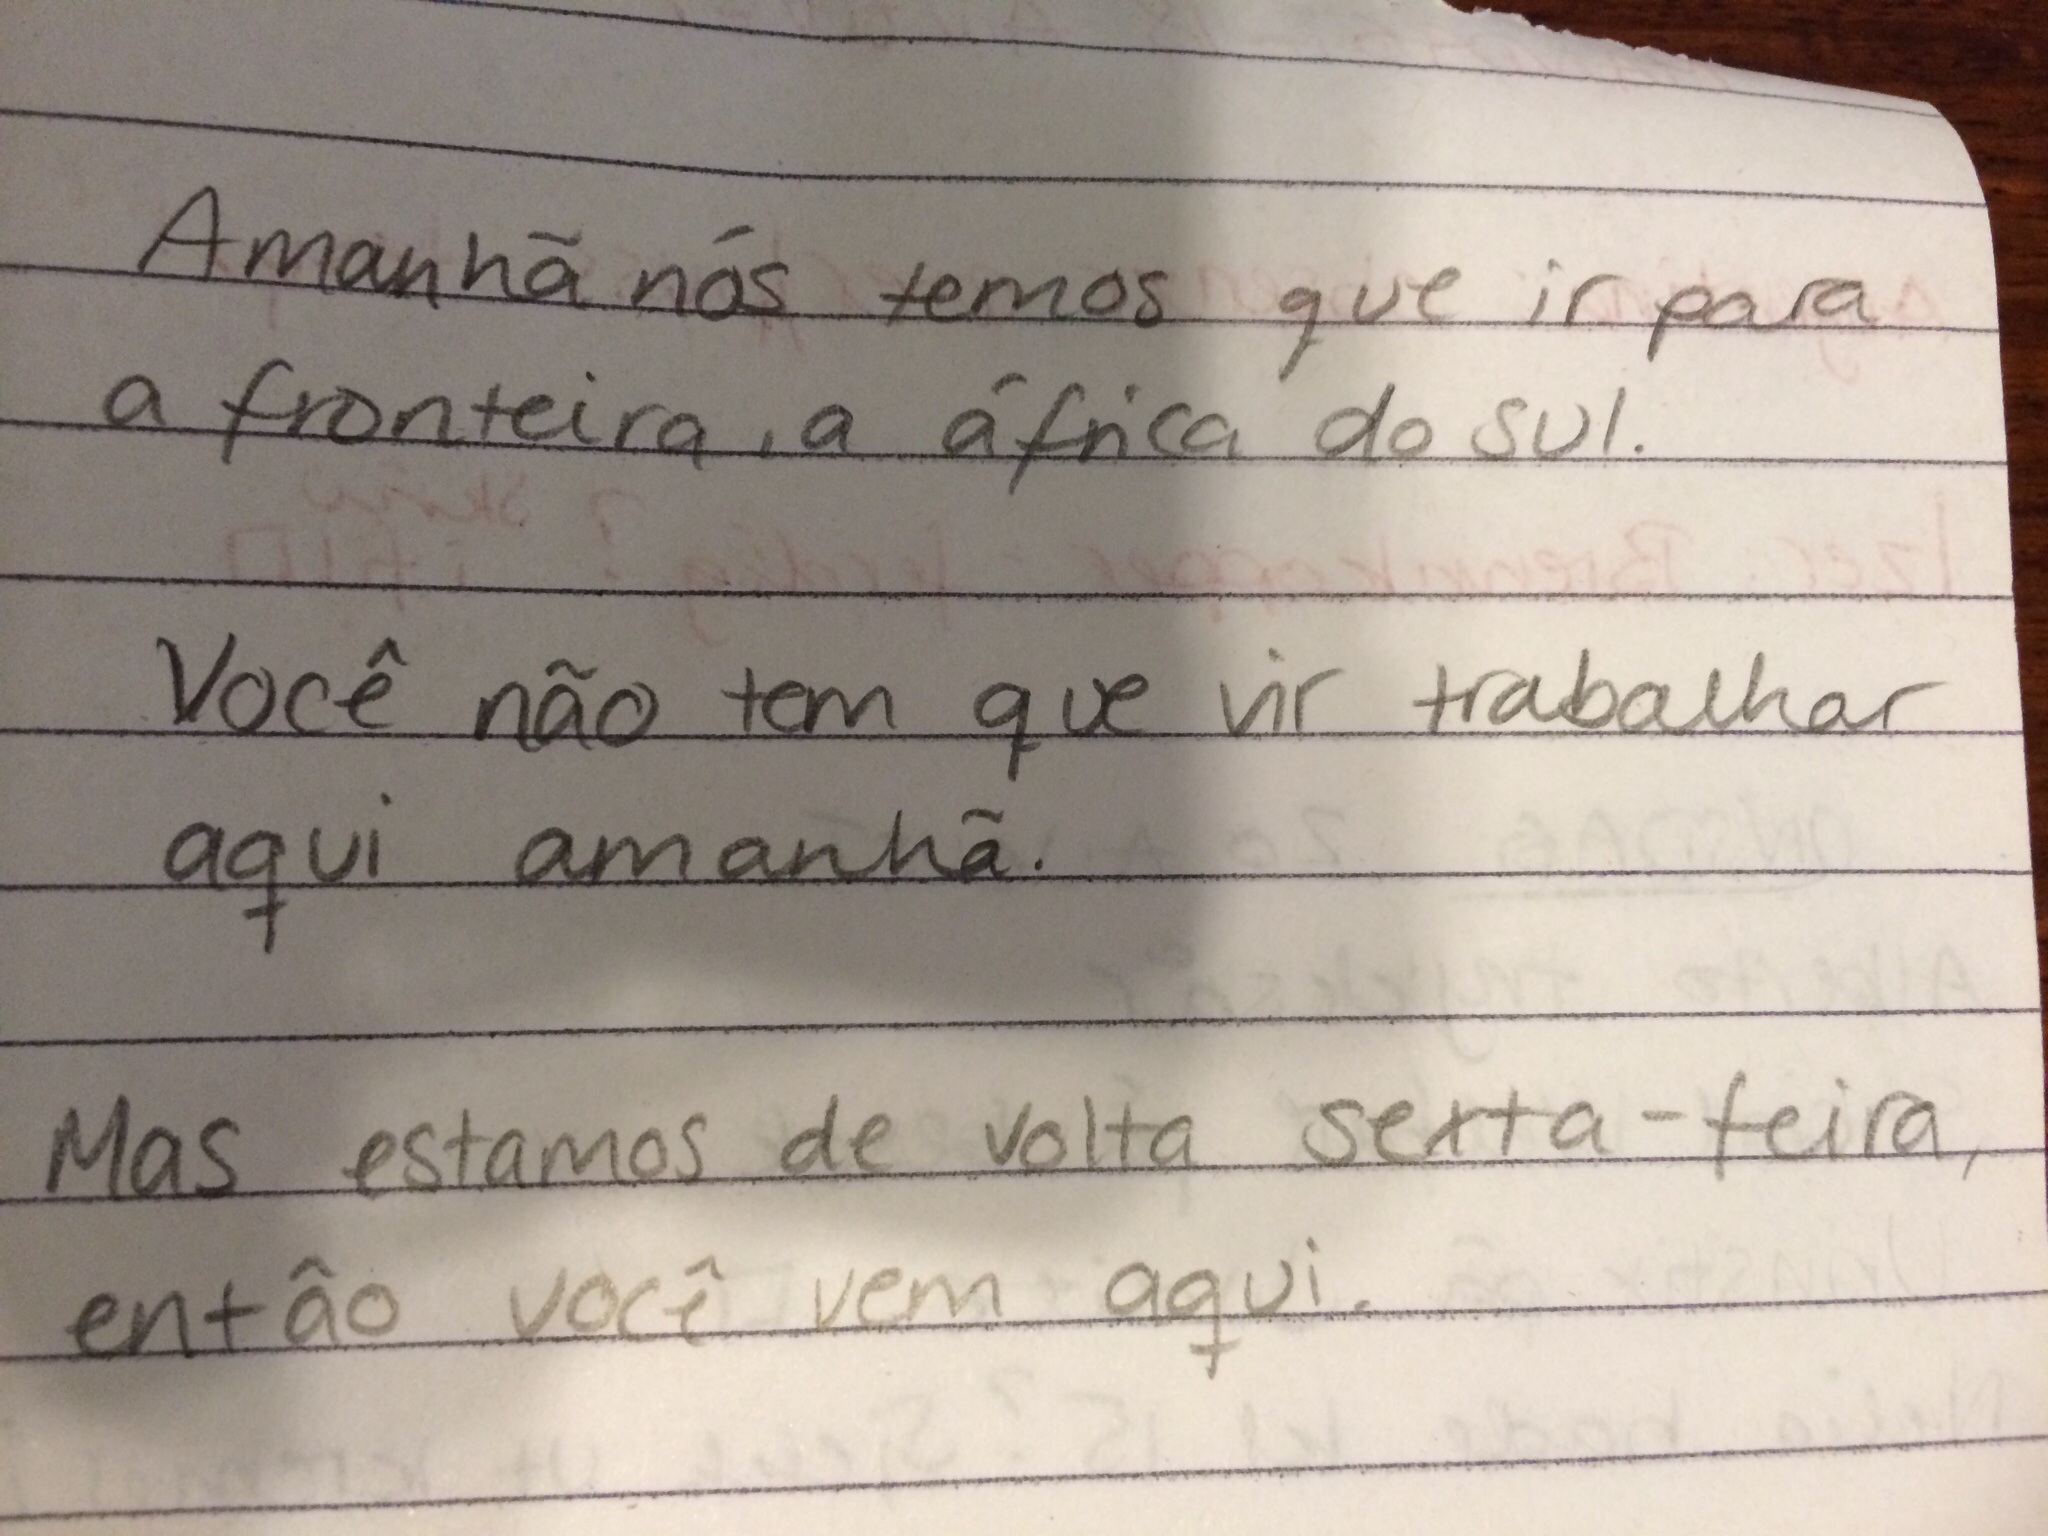 Amanhã nós temos que ir para
a fronteira, a áfrica do sul.
Você não tem que vir trabalhar
aqui amanhã.
Mas estamos de volta sexta-feira,
entâo você vem aqui.